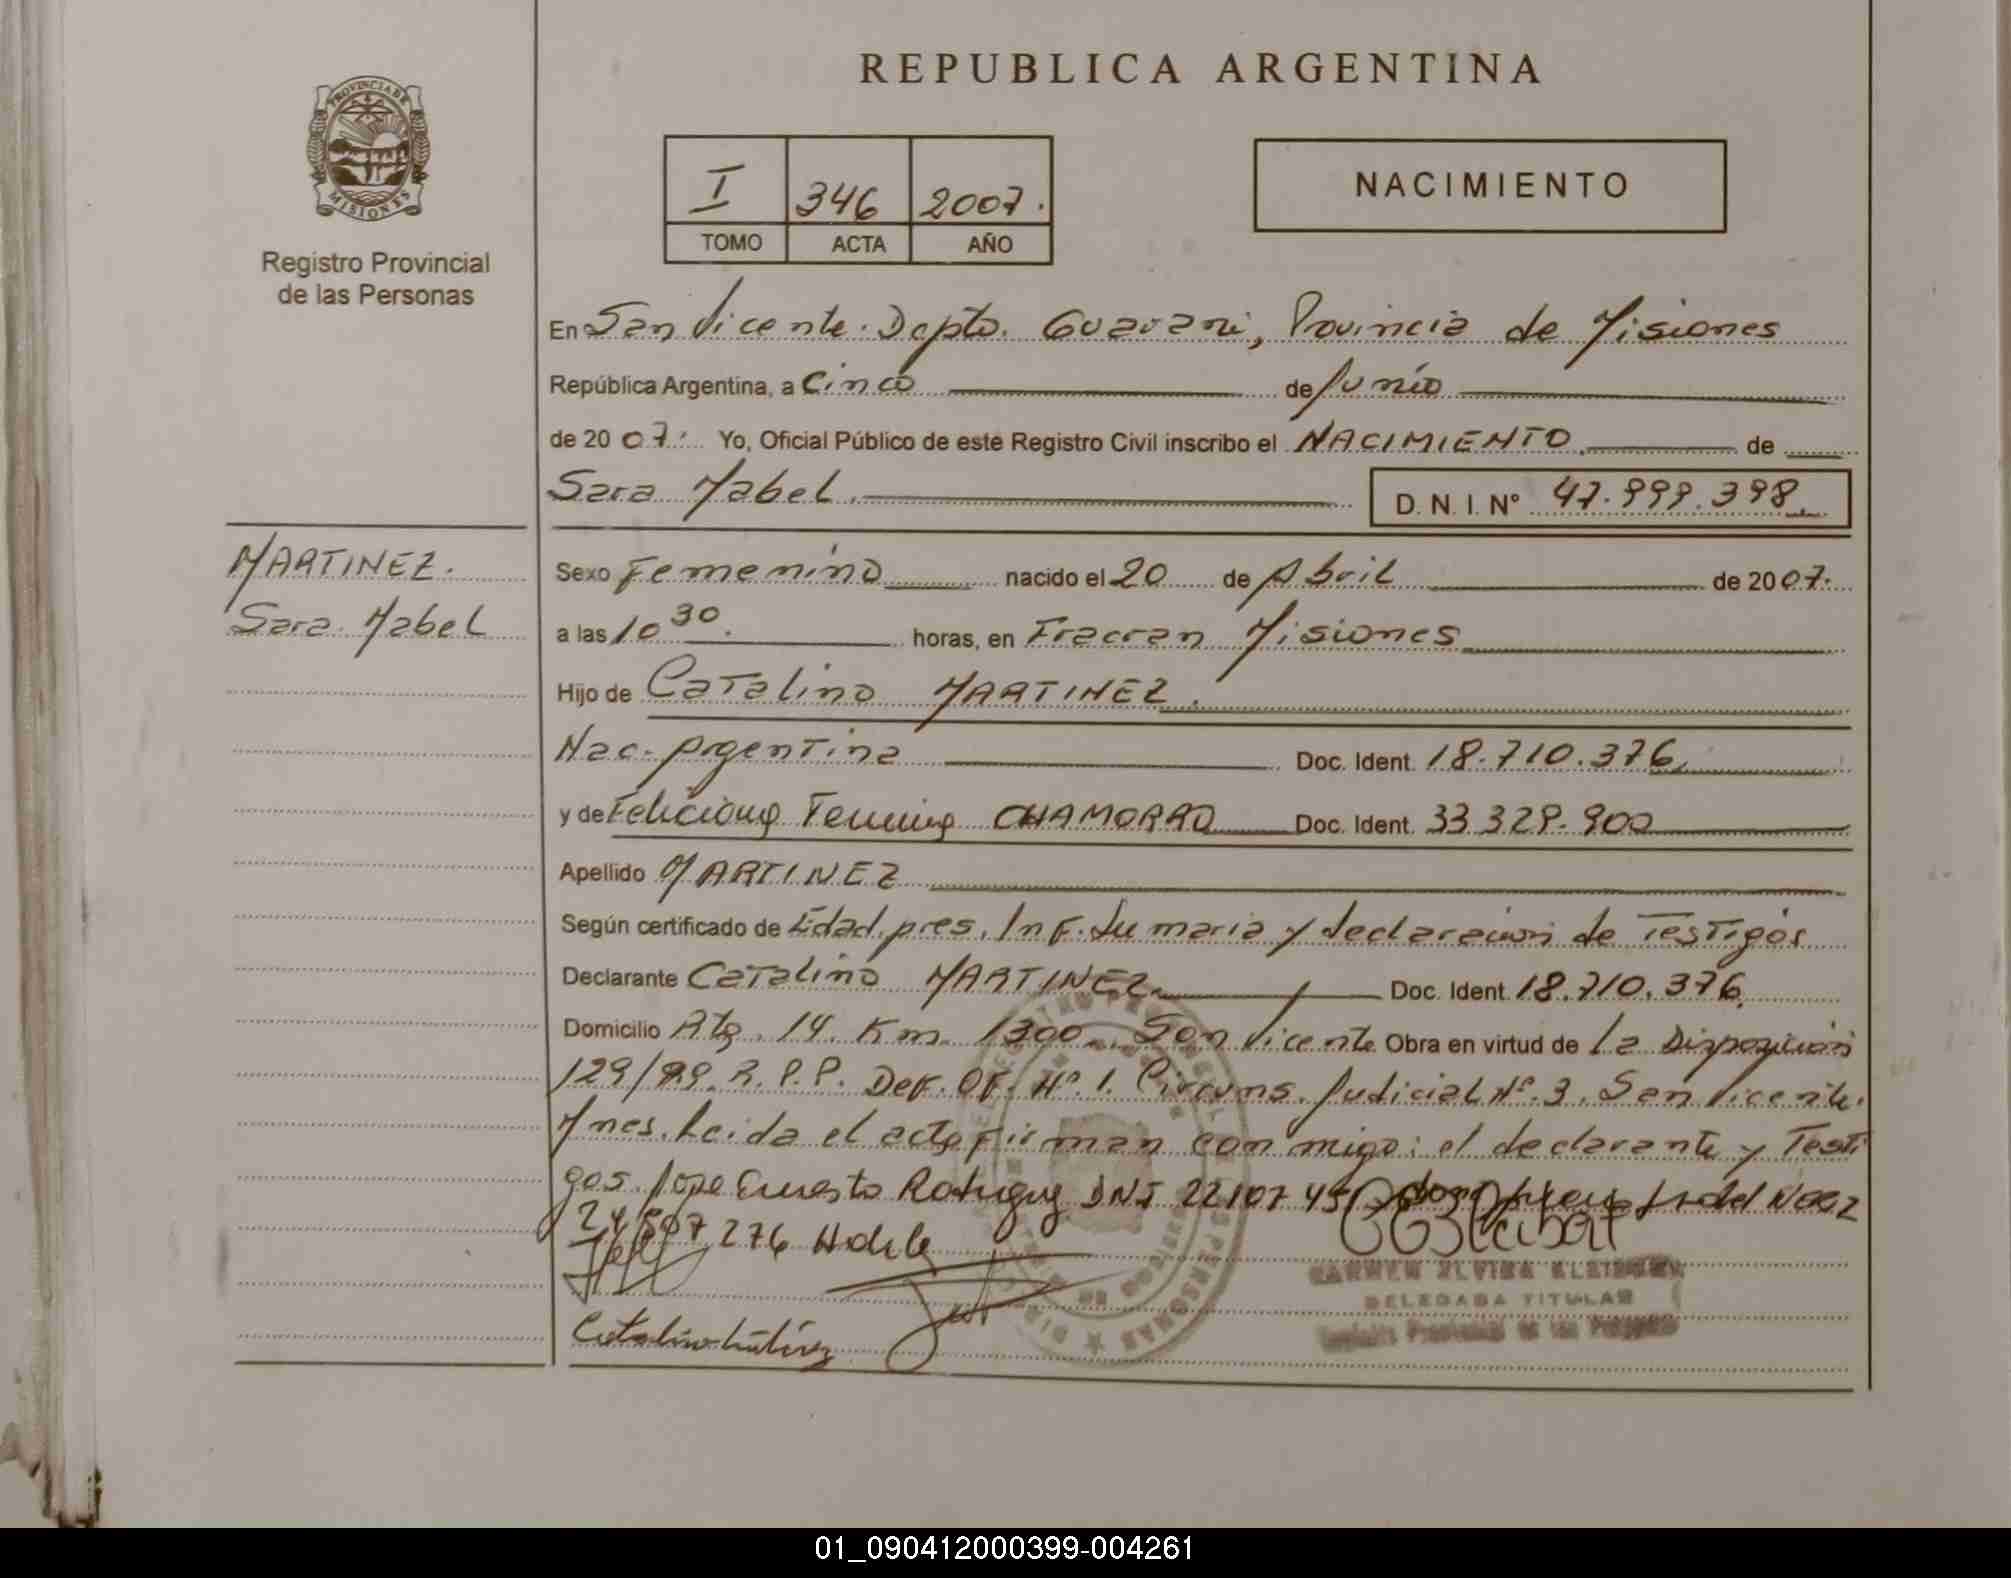 REPUBLICA ARGENTINA
PROVINCIA DE
MISIONES
Registro Provincial
de las Personas
I 346 2007.
TOMO ACTA AÑO
NACIMIENTO
En San Vicente. Depto. Guarani, Provincia de Misiones
República Argentina, a Cinco de Junio
de 2007. Yo, Oficial Público de este Registro Civil inscribo el NACIMIENTO. de
Sara Mabel.
D. N. I. Nº 47.999.398
MARTINEZ.
Sara Mabel
Sexo Femenino nacido el 20 de Abril de 2007.
a las 10 30. horas, en Fracran Misiones
Hijo de Catalino MARTINEZ.
Nac. Argentina Doc. Ident. 18.710.376
y de Feliciana CHAMORRO Doc. Ident. 33 329.900
Apellido MARTINEZ
Según certificado de Edad. pres. Inf. Sumaria y declaracion de Testigos
Declarante Catalino MARTINEZ Doc. Ident. 18.710.376.
Domicilio Rta. 14. Km. 1300. San Vicente Obra en virtud de La Disposicion
129/99. R.P.P. Def. Of. Nº. 1. Circuns. Judicial Nº. 3. San Vicente.
Mnes. Leida el acta firman con migo: el declarante y Testi
gos. Jose Ernesto DNI
276
DELEGADA TITULAR
01_090412000399-004261